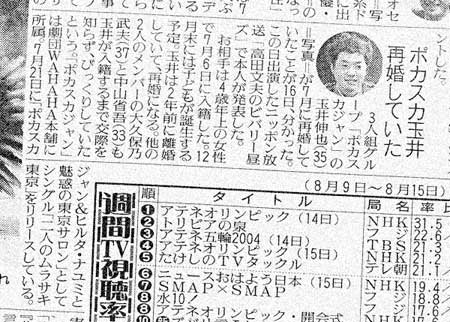 ントした。
ポカスカ玉井
再婚していた
3人組グル
ープ「ポカス
カジャン」の
玉井伸也(35)
=写真=が7月に再婚して
いたことが16日、分かった。
この日出演したニッポン放
送「高田文夫のビバリー昼
ズ」で本人が発表した。
お相手は4歳年上の女性
で7月6日に入籍した。12
月末には子どもが誕生する
予定。玉井は2年前に離婚
していて、再婚になる。他の
2人のメンバーの大久保乃
武夫(37)と中山省吾(33)も
玉井が入籍するまで交際を
知らず、びっくりしていた
という。「ポカスカジャン」
は劇団WAHAHA本舗に
所属、7月21日に「ポカスカ
ジャン&ヒルダ・ナユミと
魅惑の東京サロン」として
シングル「二人のムラサキ
東京」をリリースしている。
週間TV視聴率
(8月9日〜8月15日)
順 タイトル 局名 率
1 アテネオリンピック(14日) NHK 31.5
2 トリビアの泉 フジ 22.6
3 アテネ五輪2004(14日) TBS 21.3
4 アテネオリンピック(15日) NHK 21.2
5 たけしのTVタックル テレ朝 21.1
6 ニュースおはよう日本(15日) NHK 19.4
7 SMAP×SMAP フジ 18.
8 水10! フジ